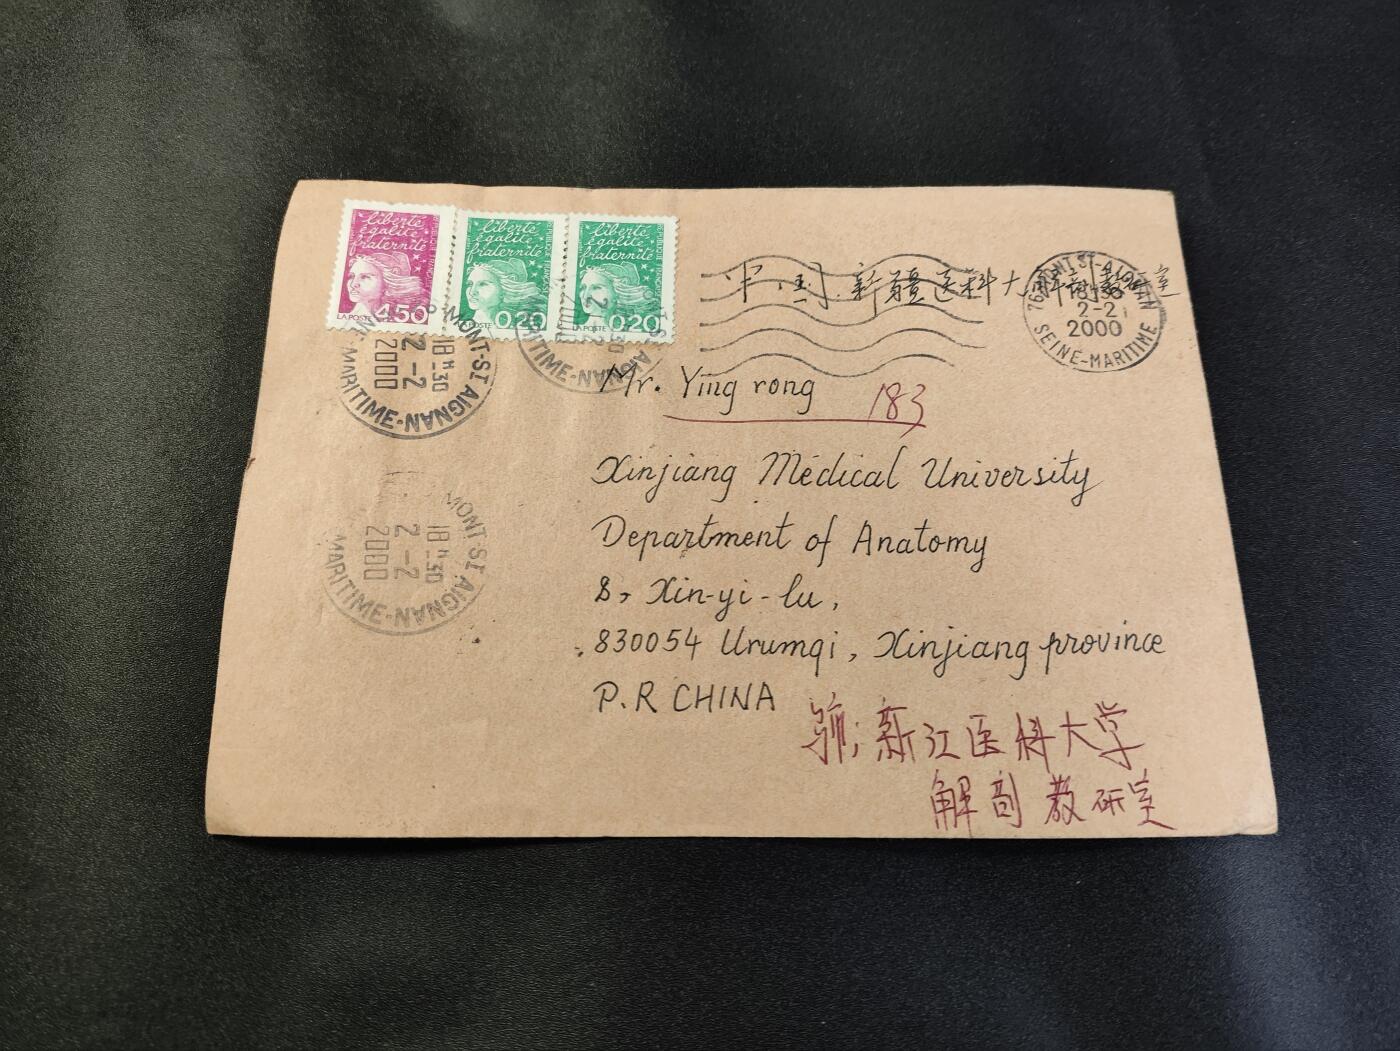 liberté
égalité
fraternité
LA POSTE 4,50
liberté
égalité
fraternité
RÉPUBLIQUE FRANÇAISE
LA POSTE 0,20
liberté
égalité
fraternité
RÉPUBLIQUE FRANÇAISE
LA POSTE 0,20
中国 新疆医科大 解剖教研室
76 MONT-ST-AIGNAN
2-2
2000
SEINE-MARITIME
MONT-ST AIGNAN
18H30
2-2
2000
MARITIME
Mr. Ying rong 183
Xinjiang Médical University
Department of Anatomy
8, Xin-yi-lu,
830054 Urumqi, Xinjiang province
P.R CHINA
新江医科大学
解剖教研室
MONT-ST AIGNAN
18H30
2-2
2000
MARITIME